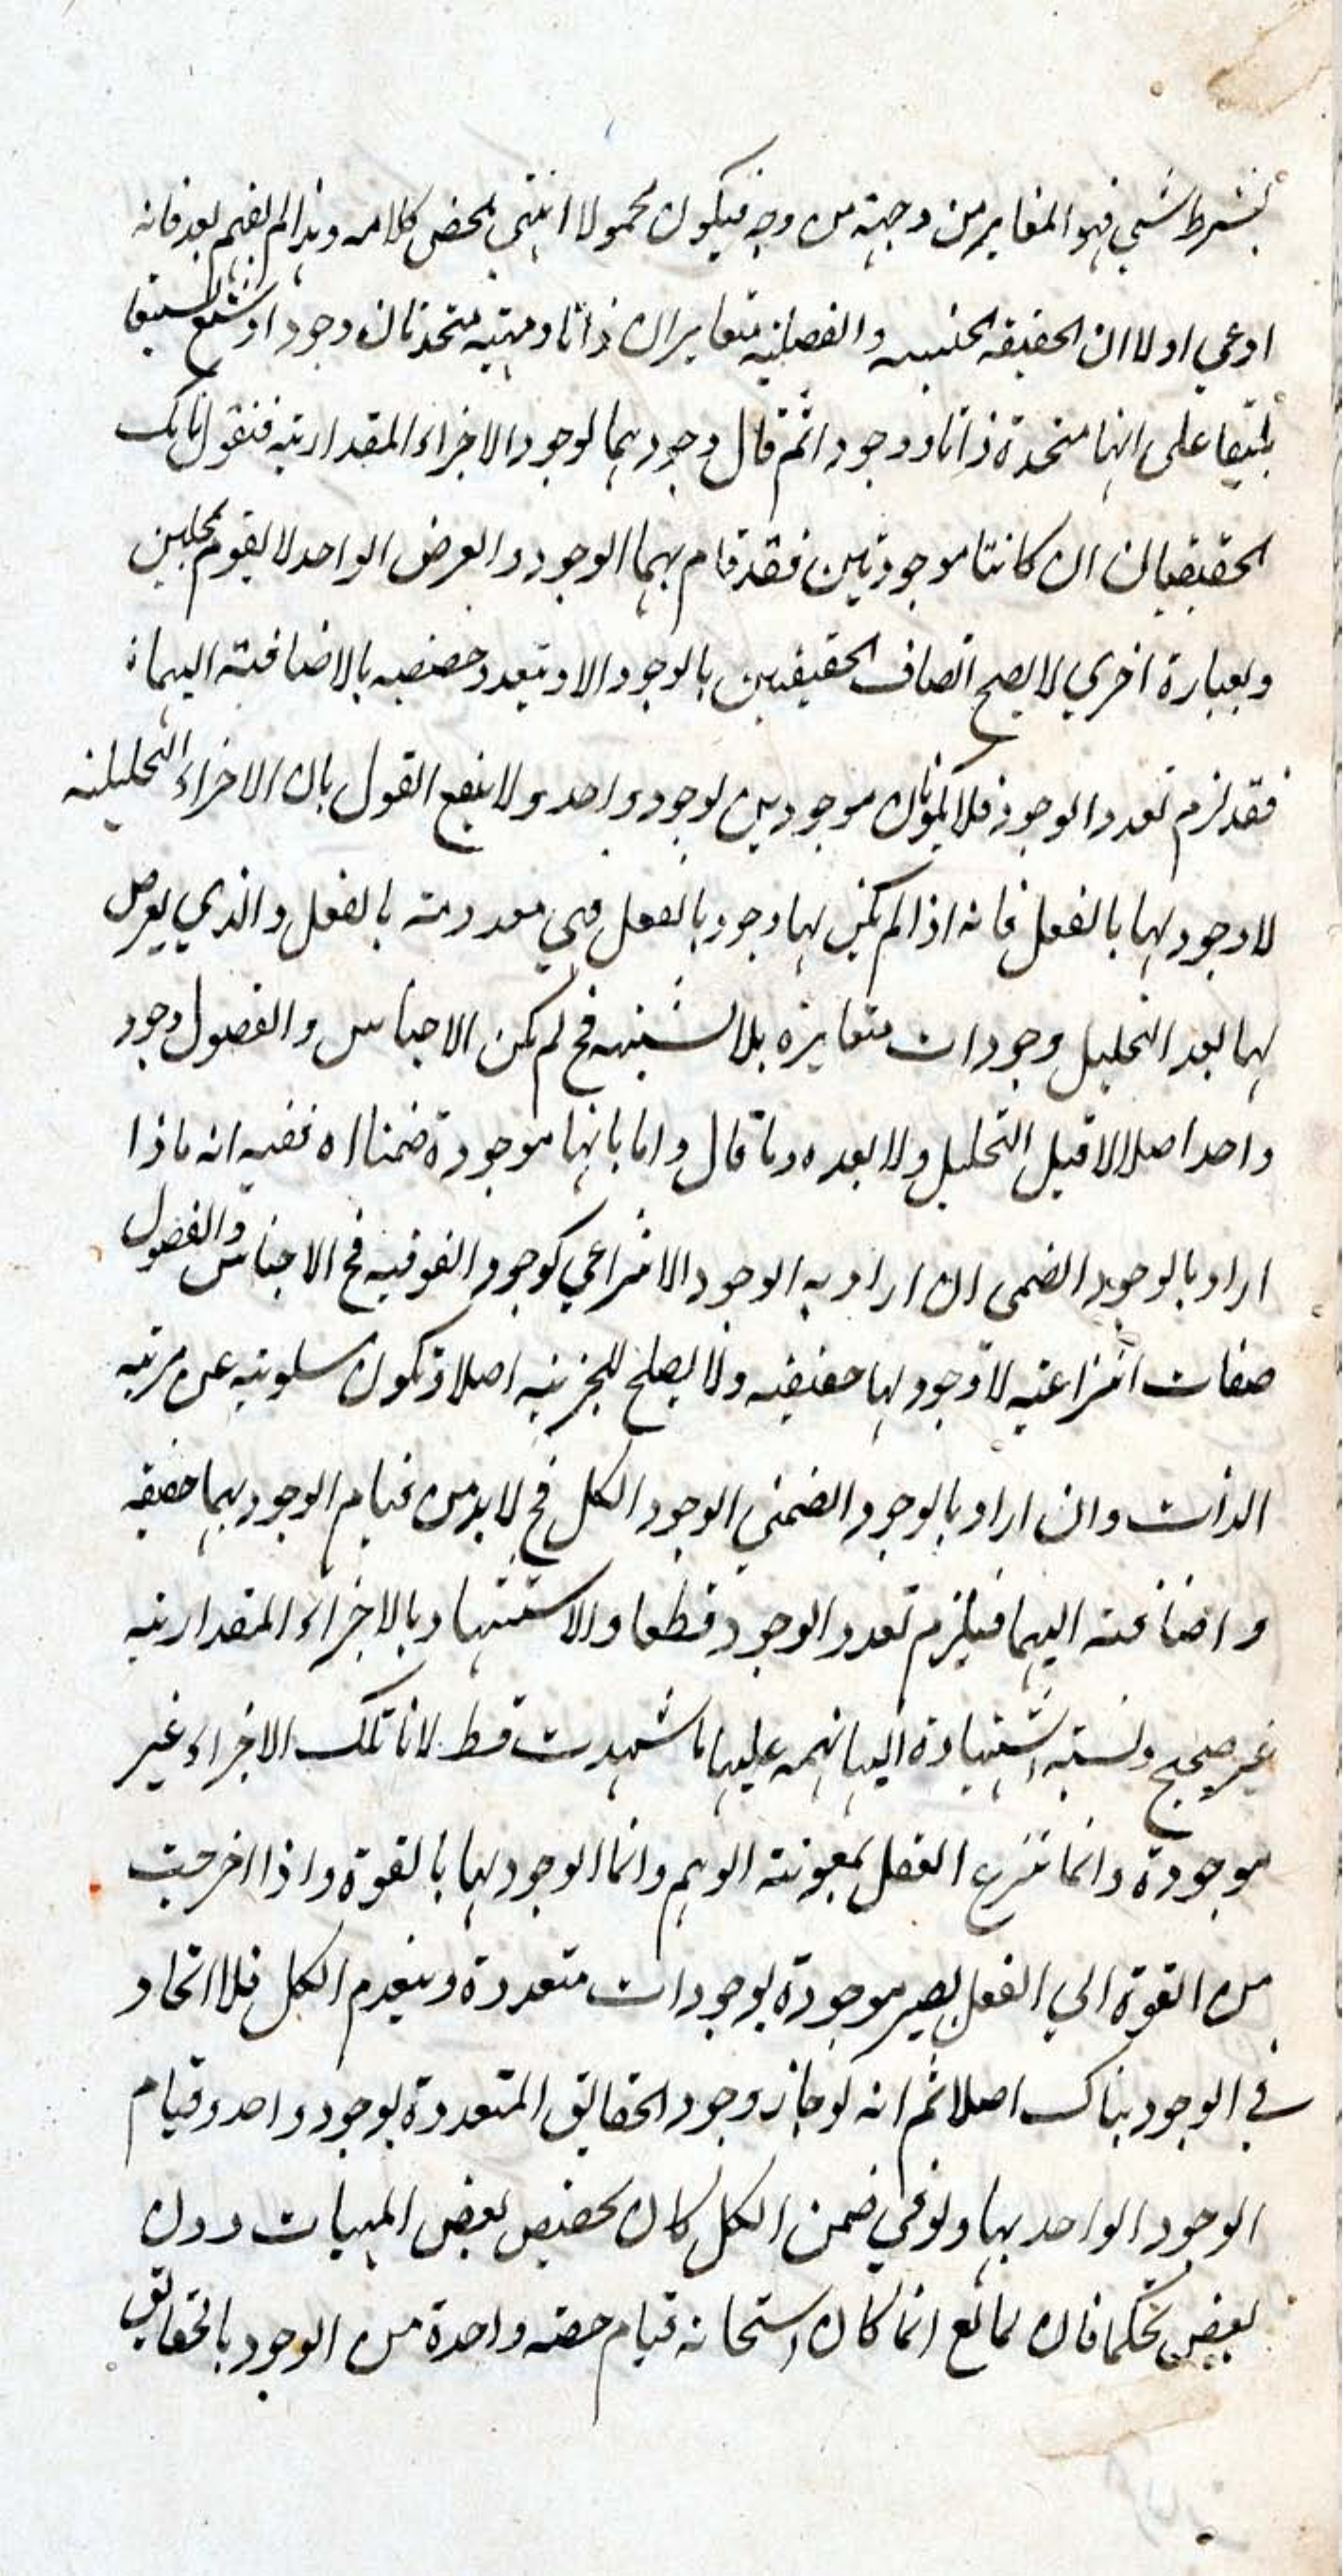 بشرط شيء فهو المغاير من وجهة من وجه فيكون محمولا انتهى محض كلامه وهذا لم يفهم بعد فانه
ادعي اولا ان الحقيقة الجنسية والفصلية متغايران ذاتا ومهية متحدتان وجودا
على انها متحدة ذاتا ووجودا ثم قال وجودهما لوجود الاجزاء المقدارية فنقول تانك
الحقيقتان ان كانتا موجودتين فقد قام بهما الوجود والعرض الواحد لا يقوم بمحلين
وبعبارة اخري لا يصح اتصاف الحقيقتين بالوجود الا وتعدد حصصه بالاضافة اليهما
فقد لزم تعدد الوجود فلا يكونان موجودين بوجود واحد ولا ينفع القول بان الاجزاء التحليلية
لا وجود لها بالفعل فانه اذا لم يكن لها وجود بالفعل فهي معدومة بالفعل والذي يعرض
لها بعد التحليل وجودات متغايرة بلا شبهة فح لم يكن الاجناس والفصول وجود
واحد اصلا لا قبل التحليل ولا بعده وما قال واما بانها موجودة ضمنا اه ففيه انه ماذا
اراد بالوجود الضمني ان اراد به الوجود الانتزاعي كوجود الفوقية فح الاجناس والفصول
صفات انتزاعية لا وجود لها حقيقة ولا يصلح للجزئية اصلا وتكون مسلوبة عن مرتبة
الذات وان اراد بالوجود الضمني الوجود الكل فح لا بد من قيام الوجود بهما حقيقة
واضافته اليهما فيلزم تعدد الوجود قطعا والاستشهاد بالاجزاء المقدارية
غير صحيح ونسبة الشهادة اليها تهمة عليها ما شهدت قط لانا تلك الاجزاء غير
موجودة وانما تنتزع العقل بمعونة الوهم وانما الوجود لها بالقوة واذا اخرجت
من القوة الي الفعل يصير موجودة بوجودات متعددة وينعدم الكل فلا اتحاد
في الوجود هناك اصلا ثم انه لو جاز وجود الحقايق المتعددة بوجود واحد وقيام
الوجود الواحد بها ولو في ضمن الكل كان تخصيص بعض المهيات دون
بعض تحكما فان المانع انما كان استحالة قيام حصة واحدة من الوجود بالحقايق